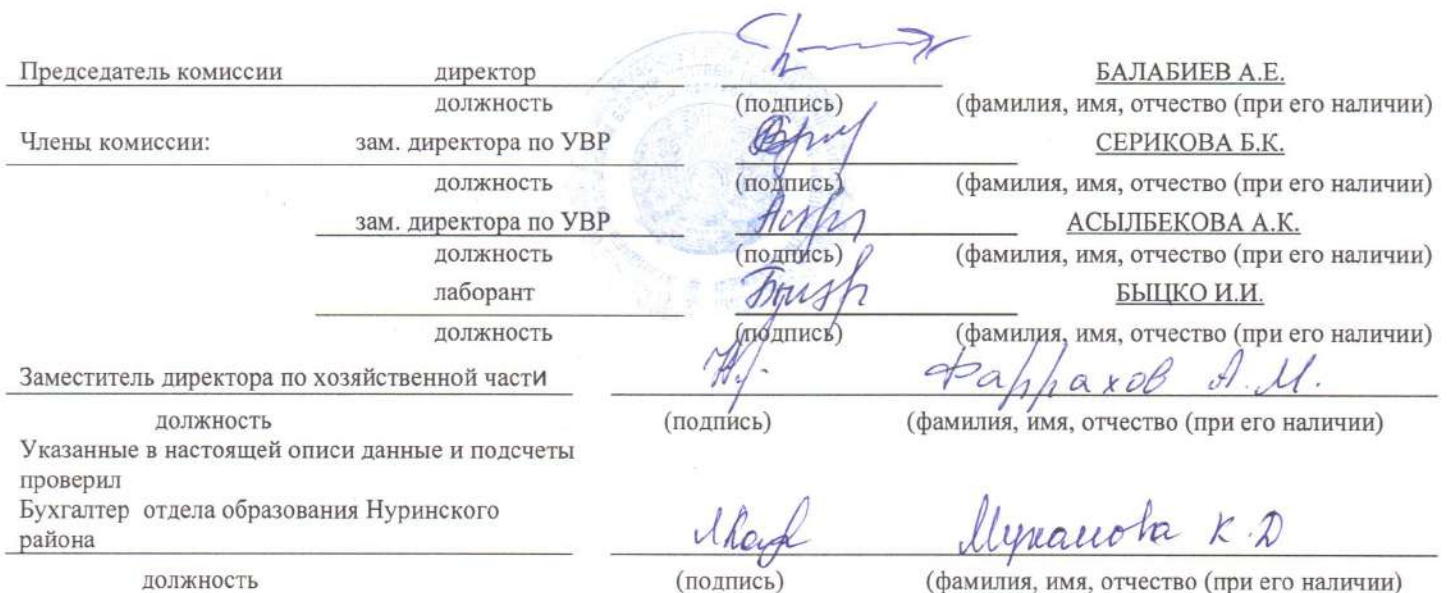 Председатель комиссии директор БАЛАБИЕВ А.Е.
должность (подпись) (фамилия, имя, отчество (при его наличии)
Члены комиссии: зам. директора по УВР СЕРИКОВА Б.К.
должность (подпись) (фамилия, имя, отчество (при его наличии)
зам. директора по УВР АСЫЛБЕКОВА А.К.
должность (подпись) (фамилия, имя, отчество (при его наличии)
лаборант БЫЦКО И.И.
должность (подпись) (фамилия, имя, отчество (при его наличии)
Заместитель директора по хозяйственной части Фаррахов А.М.
должность (подпись) (фамилия, имя, отчество (при его наличии)
Указанные в настоящей описи данные и подсчеты
проверил
Бухгалтер отдела образования Нуринского
района Муканова К.Д
должность (подпись) (фамилия, имя, отчество (при его наличии)